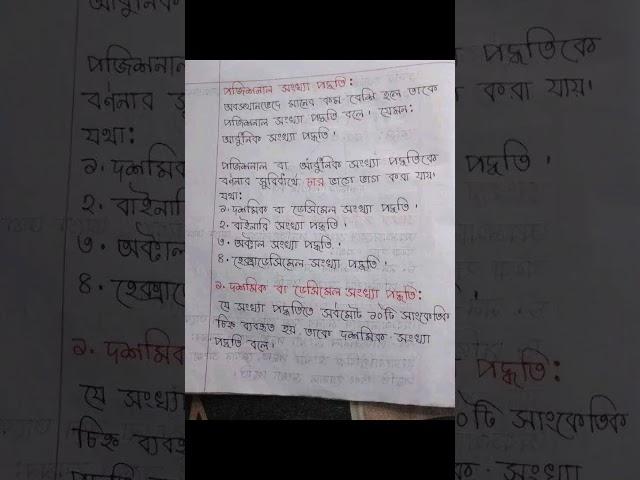 পজিশনাল সংখ্যা পদ্ধতি:
অবস্থানভেদে মানের কম বেশি হলে তাকে
পজিশনাল সংখ্যা পদ্ধতি বলে। যেমন:
আধুনিক সংখ্যা পদ্ধতি।
পজিশনাল বা আধুনিক সংখ্যা পদ্ধতিকে
বর্ণনার সুবিধার্থে চার ভাগে ভাগ করা যায়।
যথা:
১. দশমিক বা ডেসিমেল সংখ্যা পদ্ধতি।
২. বাইনারি সংখ্যা পদ্ধতি।
৩. অক্টাল সংখ্যা পদ্ধতি।
৪. হেক্সাডেসিমেল সংখ্যা পদ্ধতি।
১. দশমিক বা ডেসিমেল সংখ্যা পদ্ধতি:
যে সংখ্যা পদ্ধতিতে সর্বমোট ১০টি সাংকেতিক
চিহ্ন ব্যবহৃত হয় তাকে দশমিক সংখ্যা
পদ্ধতি বলে।